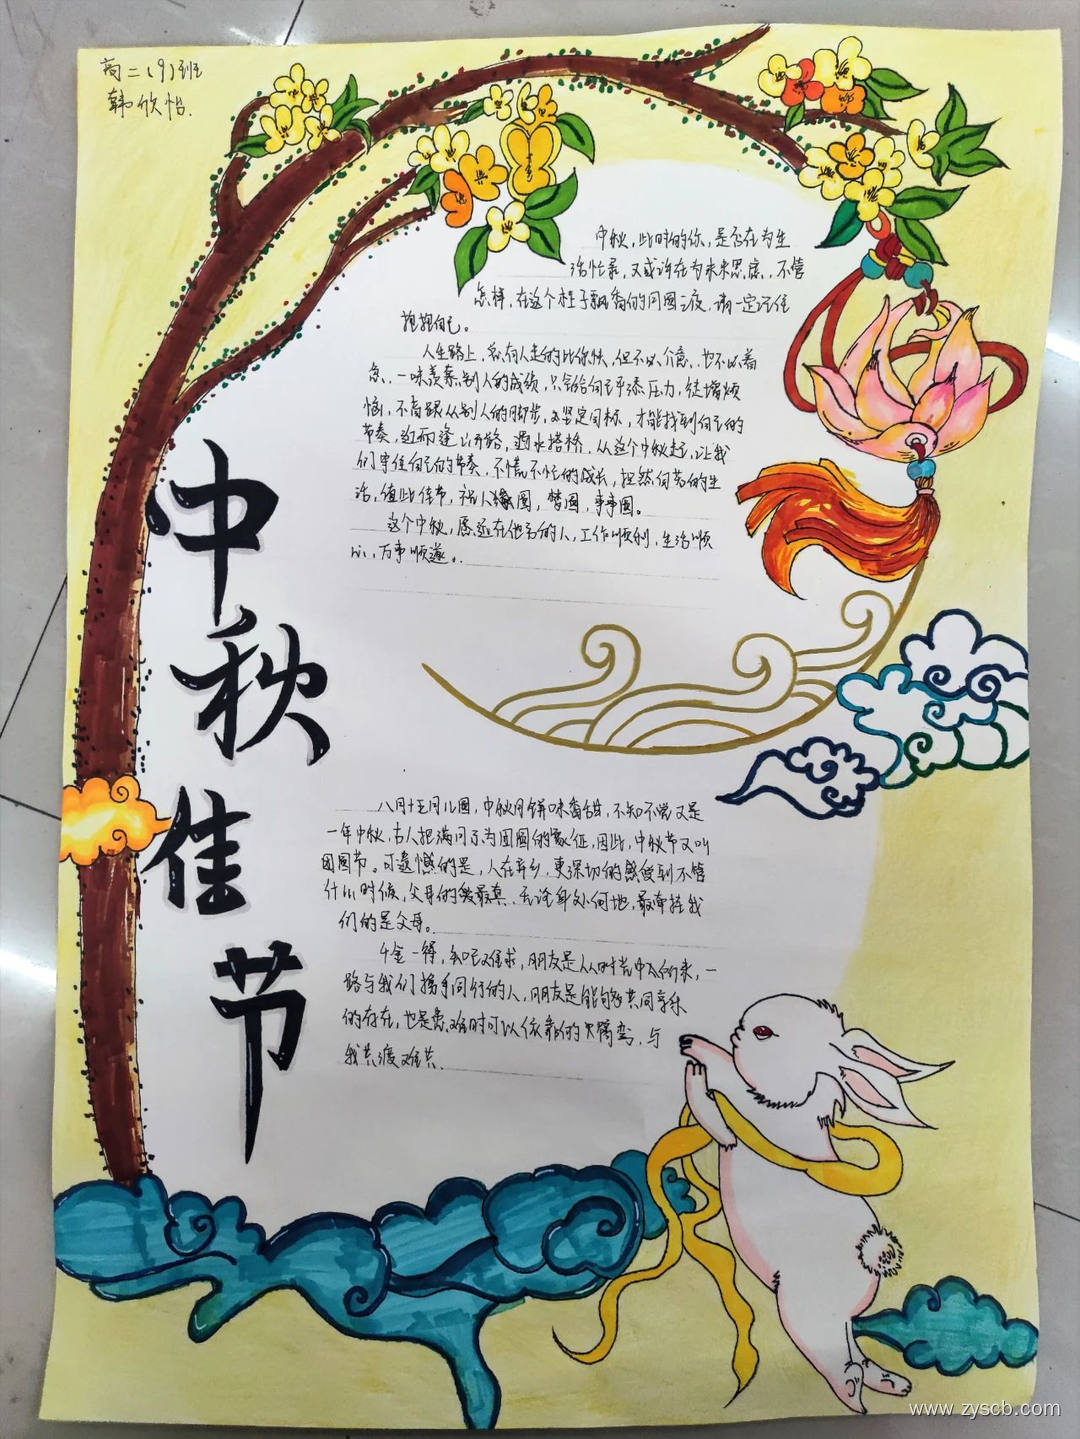 高二(9)班
韩欣怡.
中秋佳节
中秋,此时的你,是否在为生
活忙录,又或许在为未来思虑,不管
怎样,在这个桂子飘香的月圆之夜,请一定记住
抱抱自己。
人生路上,总有人走的比你快,但不必介意,也不必着
急,一味羡慕别人的成绩,只会给自己平添压力,徒增烦
恼,不盲跟从别人的脚步,坚定目标,才能找到自己的
节奏,进而逢山开路,遇水搭桥,从这个中秋起,让我
们守住自己的节奏,不慌不忙的成长,坦然向若的生
活,值此佳节,祝人缘圆,梦圆,事事圆。
这个中秋,愿远在他方的人,工作顺利,生活顺
心,万事顺遂。
八月十五月儿圆,中秋月饼味香甜,不知不觉又是
一年中秋,古人把满月了为团圆的象征,因此,中秋节又叫
团圆节。可遗憾的是,人在异乡,更深切的感受到不管
什么时候,父母的爱最真,无论身处何地,最牵挂我
们的是父母。
千金一得,知己难求,朋友是从时光中飞的来,一
路与我们携手同行的人,朋友是能够共同享乐
的存在,也是患难时可以依靠的,与
我共渡难共.
www.zyscb.com